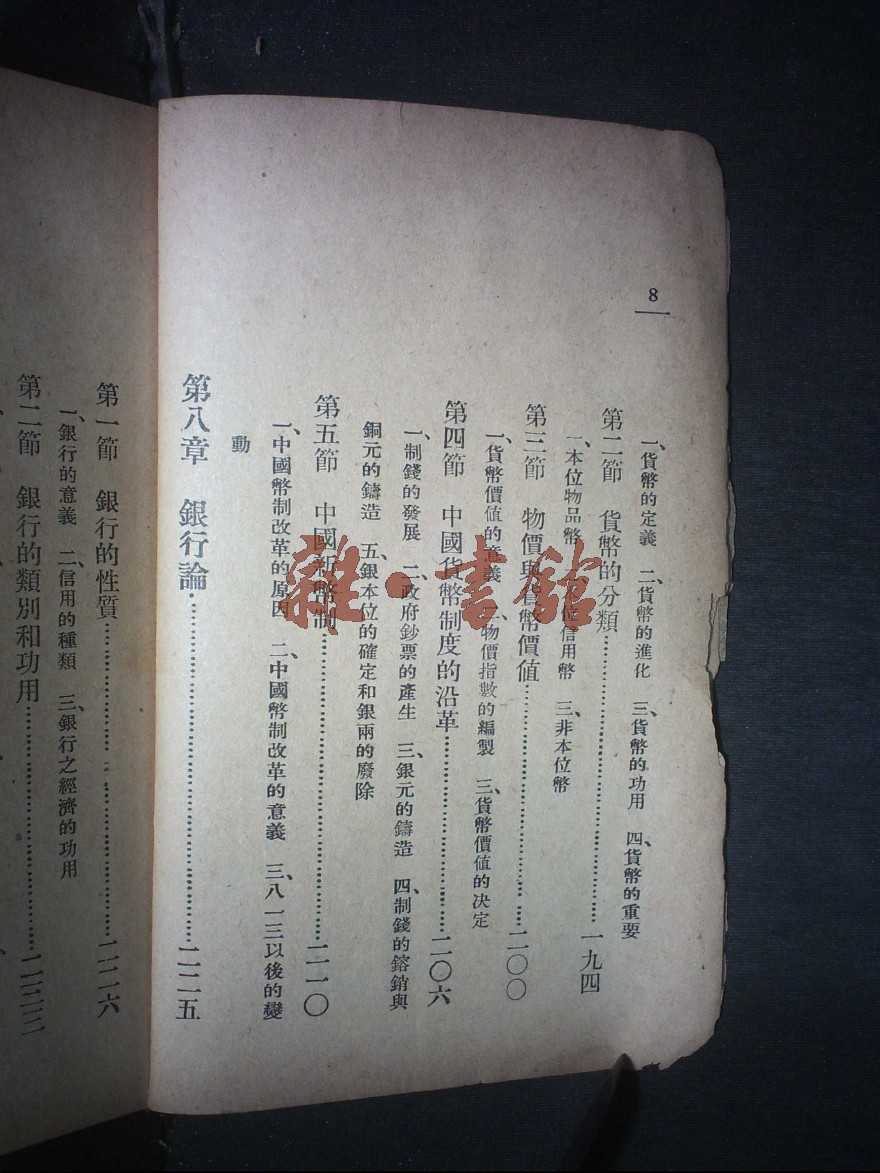 8
一、貨幣的定義　二、貨幣的進化　三、貨幣的功用　四、貨幣的重要
第二節　貨幣的分類……一九四
一、本位物品幣　二、本位信用幣　三、非本位幣
第三節　物價與貨幣價值……二〇〇
一、貨幣價值的意義　二、物價指數的編製　三、貨幣價值的決定
第四節　中國貨幣制度的沿革……二〇六
一、制錢的發展　二、政府鈔票的產生　三、銀元的鑄造　四、制錢的鎔銷與
銅元的鑄造　五、銀本位的確定和銀兩的廢除
第五節　中國新幣制……二一〇
一、中國幣制改革的原因　二、中國幣制改革的意義　三、八一三以後的變
動
第八章　銀行論……二二五
第一節　銀行的性質……二二六
一、銀行的意義　二、信用的種類　三、銀行之經濟的功用
第二節　銀行的類別和功用……二三三
雜·書館